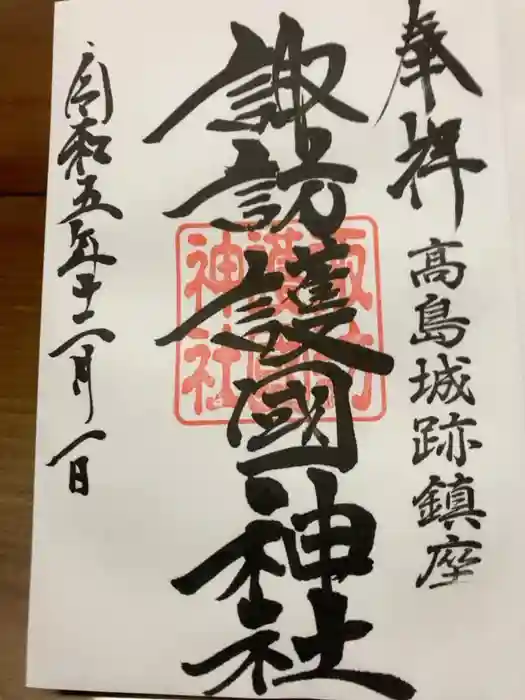 奉拝
高島城跡鎮座
諏訪護國神社
諏訪
護国
神社
令和五年十二月一日